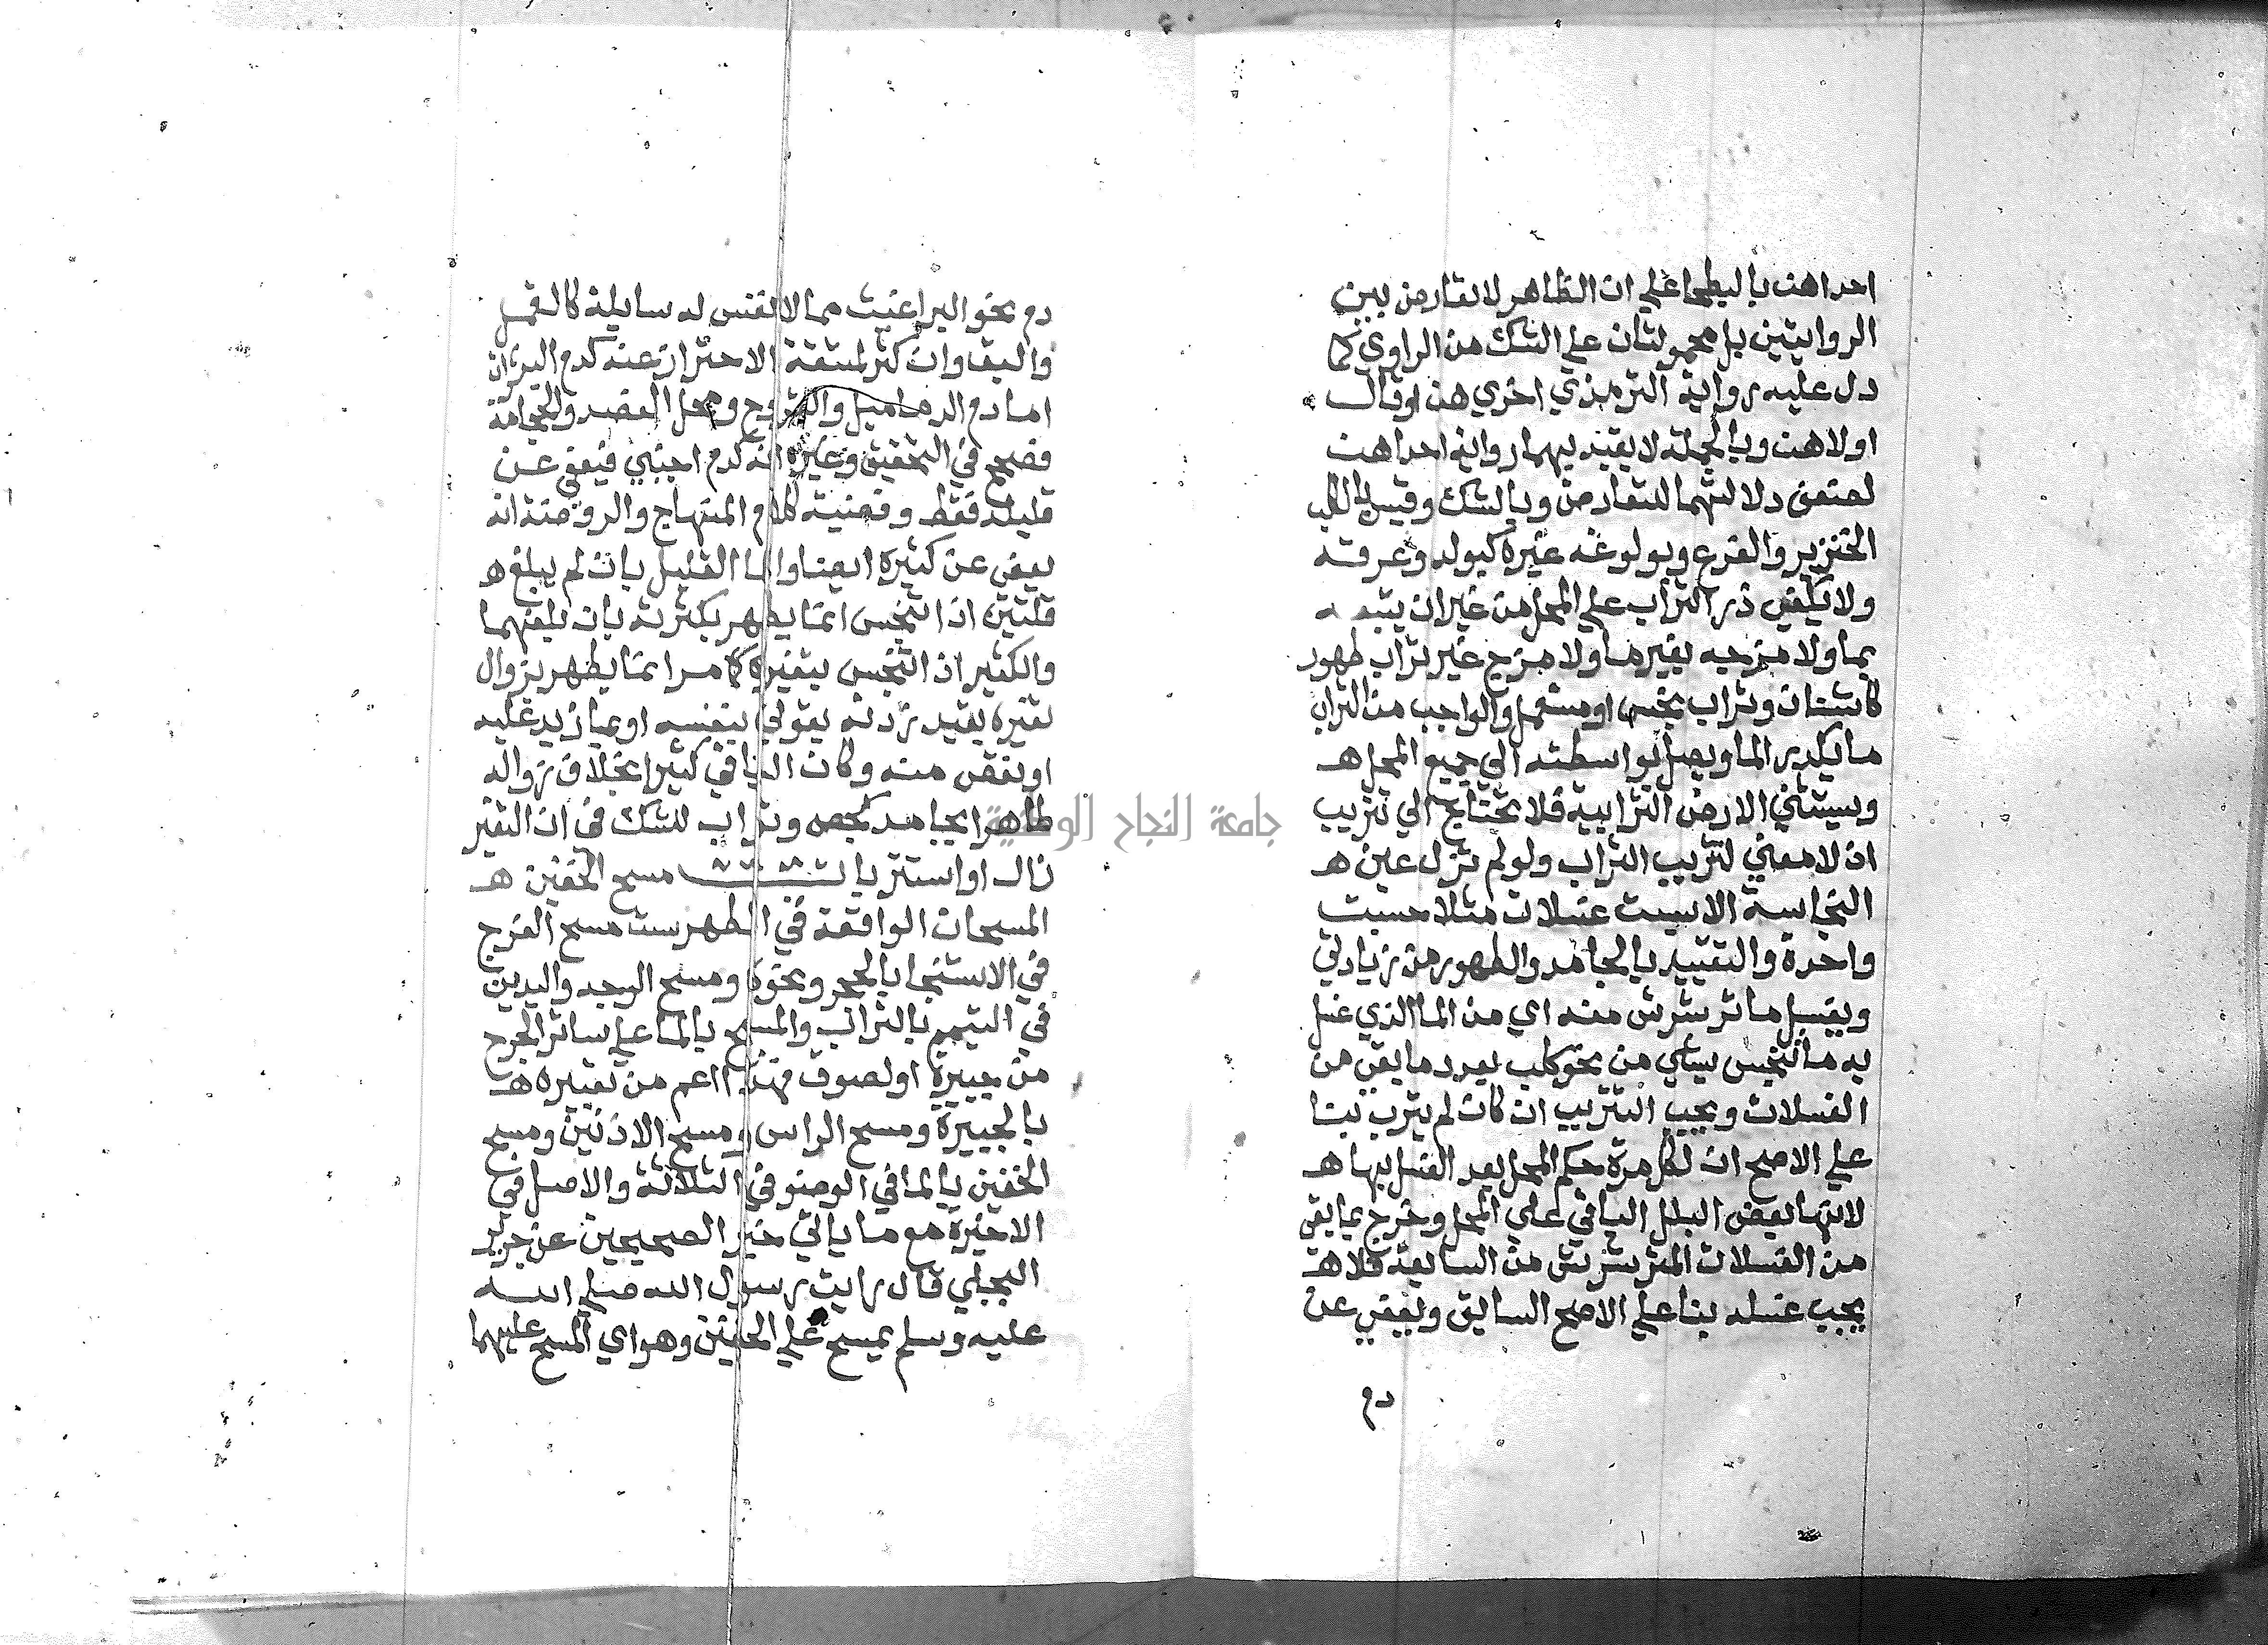 احداهن بالبطحا علي ان الظاهر لا تعارض بين
الروايتين بل محمولتان علي الشك من الراوي كما
دل عليه رواية الترمذي اخري هن او قال
اولاهن وبالجملة لا يقيد بهما رواية احداهن
لضعف دلالتهما للتعارض وبالشك وقيس بالكلب
الخنزير والفرع وبولوغه غيره كبوله وعرقه
ولا يكفي ذر التراب علي المحل من غير ان يتبعه
بما ولا مزجه بغير ما ولا مزج غير تراب طهور
كاشنان وتراب نجس او مستعمل والواجب من التراب
ما يكدر الما ويصل بواسطته الي جميع المحل هـ
ويستثني الارض الترابية فلا تحتاج الي تتريب
اذ لا معني لتتريب التراب ولو لم تزل عين هـ
النجاسة الا بست غسلات مثلا حسبت
واحدة والتقييد بالجامد والطهور من زيادتي
ويغسل ما ترشرش منه اي من الما الذي غسل
به ما تنجس بشي من نحو كلب بعدد ما بقي من
الغسلات ويجب التتريب ان كان لم يترب بنا
علي الاصح ان لكل مرة حكم المحل بعد الغسل بها هـ
لانها بعض البلل الباقي علي المحل وخرج بما بقي
من الغسلات المترشرش من السابعة فلا هـ
يجب غسله بنا علي الاصح السابق ويعفي عن
دم
دم نحو البراغيث مما لا نفس له سايلة كالقمل
والبق وان كثر لمشقة الاحتراز عنه كدم البثرات
اما دم الدماميل والقروح ومحل الفصد والحجامة
فصحح في التحقيق وغيره انه كدم اجنبي فيعفي عن
قليله فقط وقضية كلام المنهاج والروضة انه
يعفي عن كثيره ايضا والما القليل بان لم يبلغ هـ
قلتين اذا تنجس انما يطهر بكثرته بان بلغهما
والكثير اذا تنجس بتغيره كما مر انما يطهر بزوال
تغيره بقيد زدته بقولي بنفسه او بما زيد عليه
او نقص منه وكان الباقي كثيرا بخلاف زواله
ظاهرا بجامد كجص وتراب للشك في ان التغير
زال او استتر باب مسح الخفين هـ
المسحات الواقعة في الطهر ست مسح الفرج
في الاستنجا بالحجر ونحوه ومسح الوجه واليدين
في التيمم بالتراب والمسح بالما علي ساتر الجرح
من جبيرة او لصوق فهذا اعم من تعبيره هـ
بالجبيرة ومسح الراس ومسح الاذنين ومسح
الخفين بالما في الوضو في الثلاثة والاصل في
الاخيرة مع ما ياتي خبر الصحيحين عن جرير
البجلي قال رايت رسول الله صلي الله
عليه وسلم يمسح علي الخفين وهو اي المسح عليهما
جامعة النجاح الوطنية